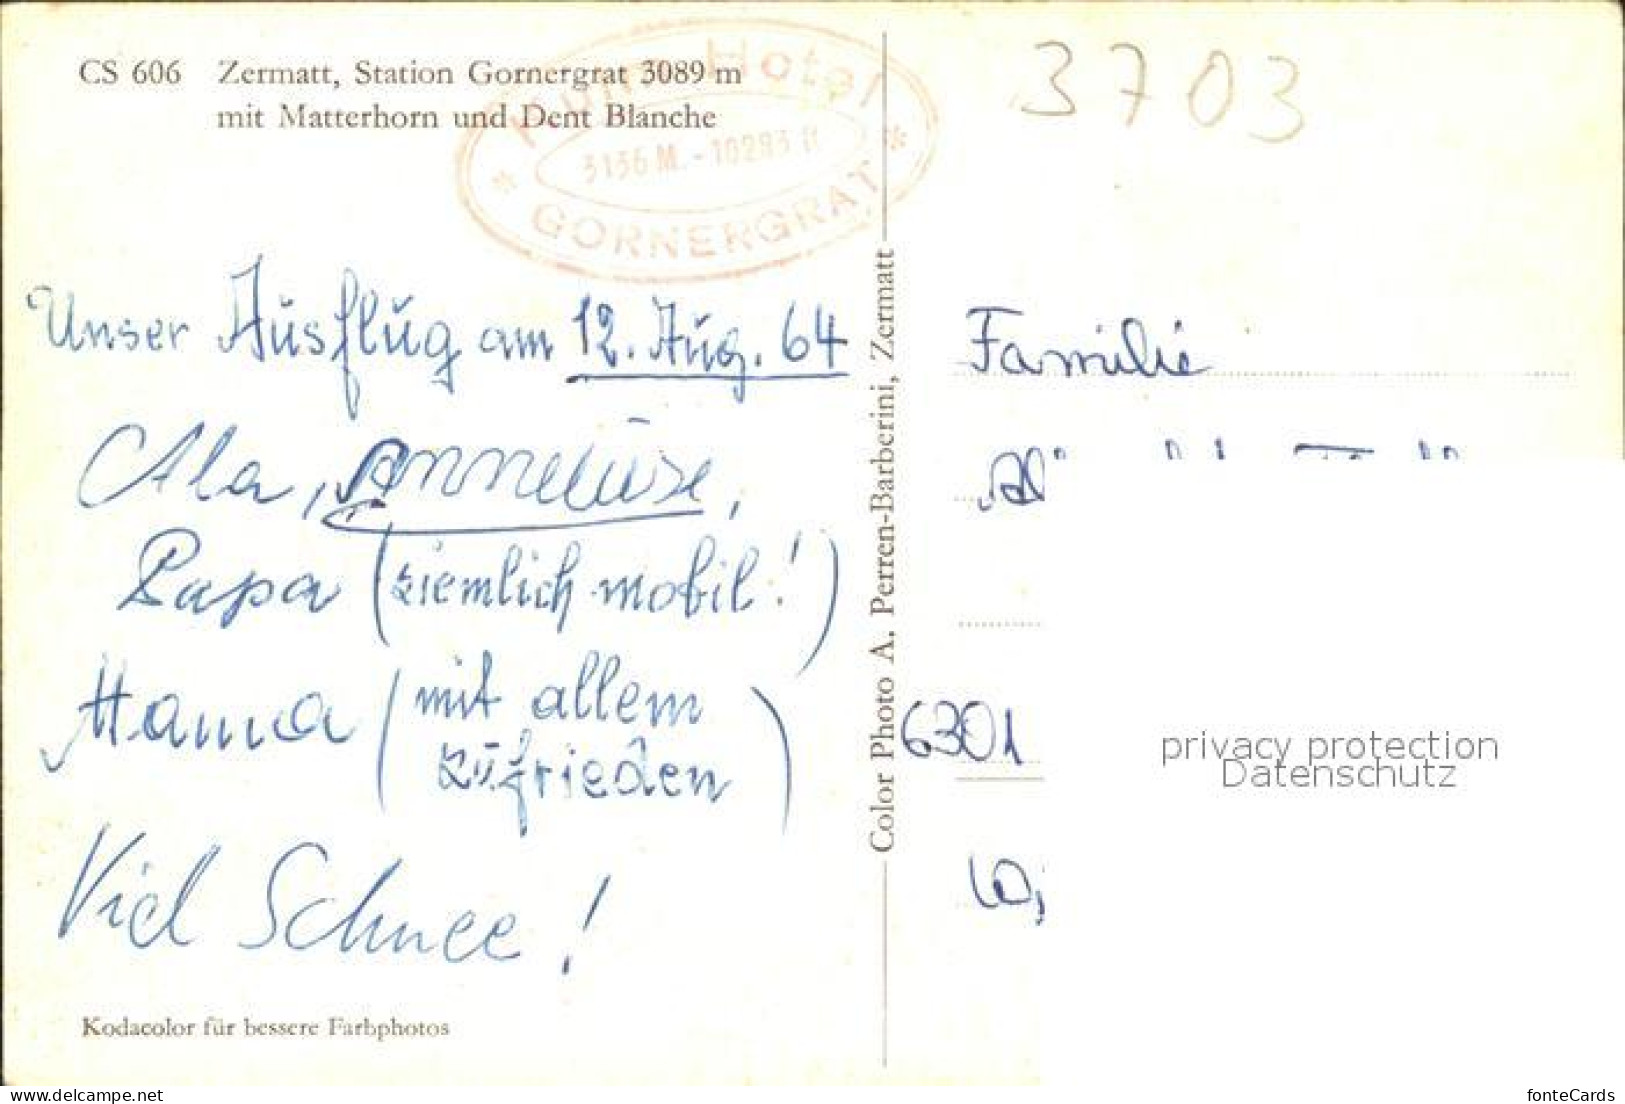 CS 606 Zermatt, Station Gornergrat 3089 m
mit Matterhorn und Dent Blanche
Hotel
3136 M. - 10283 ft
GORNERGRAT
3703
Unser Ausflug am 12. Aug. 64
Anneliese,
Papa (ziemlich mobil!)
Mama (mit allem
zufrieden)
Viel Schnee!
Kodacolor für bessere Farbphotos
Color Photo A. Perren-Barberini, Zermatt
Familie
6301
privacy protection
Datenschutz
www.delcampe.net
fonteCards